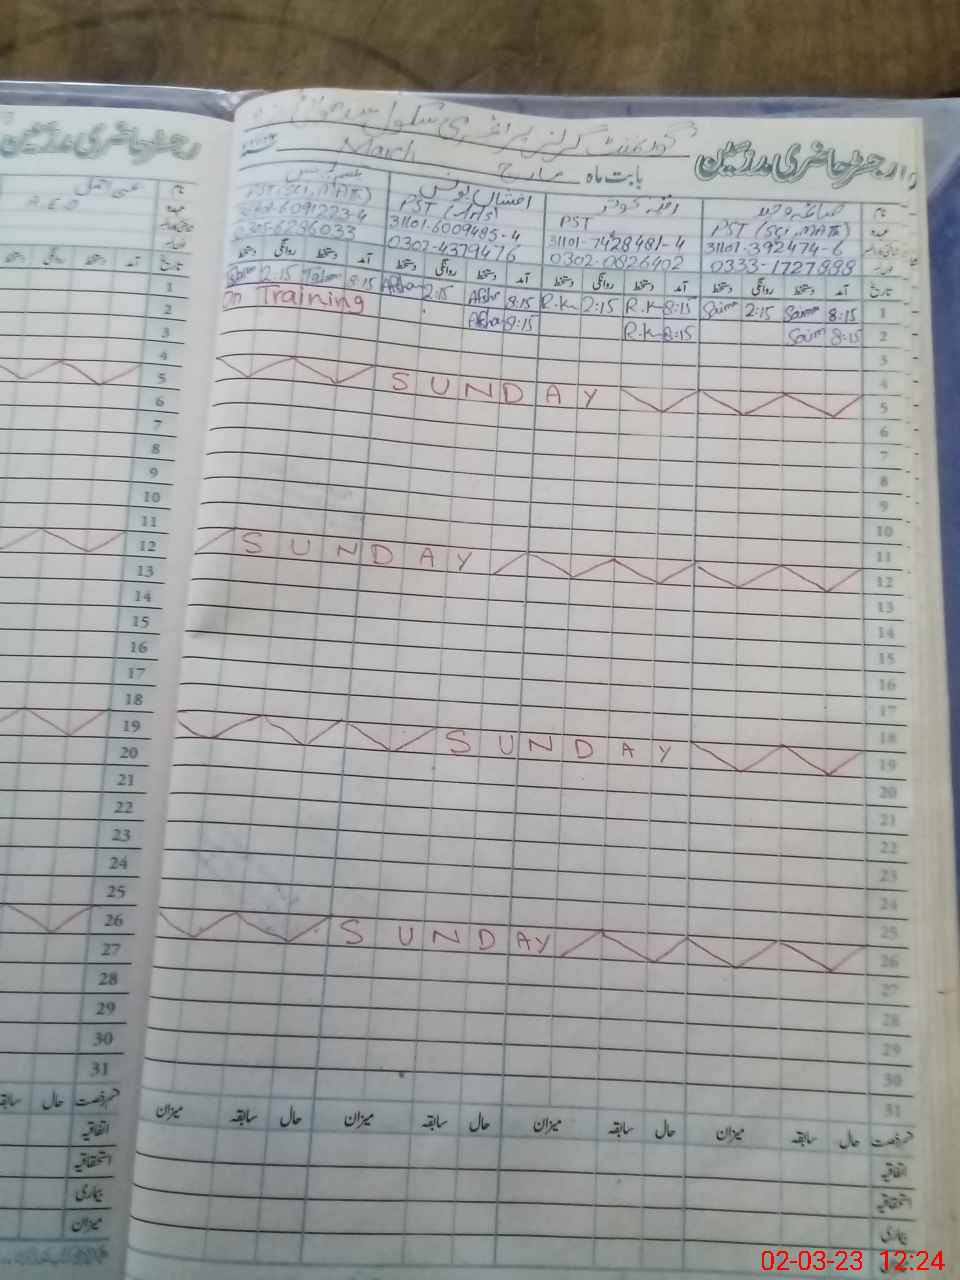 گورنمنٹ گرلز پرائمری سکول
رجسٹر حاضری مدرسین
March
بابت ماہ مارچ
رجسٹر حاضری مدرسین
نام
PST (SCI, MATH)
افشاں یونس
PST (Arts)
31101-6009485-4
0302-4379476
رفعت کوثر
PST
31101-7428481-4
0302-0826402
صائمہ وحید
PST (SCI, MATH)
31101-392474-6
0333-1727888
نام
A.E.O
عہدہ
تاریخ
دستخط روانگی دستخط آمد دستخط روانگی دستخط آمد دستخط روانگی دستخط آمد دستخط روانگی دستخط آمد تاریخ
2:15 8:15 Afsha 2:15 Afsha 8:15 R.K 2:15 R.K 8:15 Saima 2:15 Saima 8:15 1
On Training Afsha 8:15 R.K 8:15 Saima 8:15 2
3
4
SUNDAY 5
6
7
8
9
10
11
SUNDAY 12
13
14
15
16
17
18
SUNDAY 19
20
21
22
23
24
25
SUNDAY 26
27
28
29
30
31
میزان سابقہ حال میزان سابقہ حال میزان سابقہ حال میزان سابقہ حال قسم رخصت
اتفاقیہ
استحقاقیہ
بیماری
میزان
1
2
3
4
5
6
7
8
9
10
11
12
13
14
15
16
17
18
19
20
21
22
23
24
25
26
27
28
29
30
31
سابقہ حال قسم رخصت
اتفاقیہ
استحقاقیہ
بیماری
میزان
02-03-23 12:24